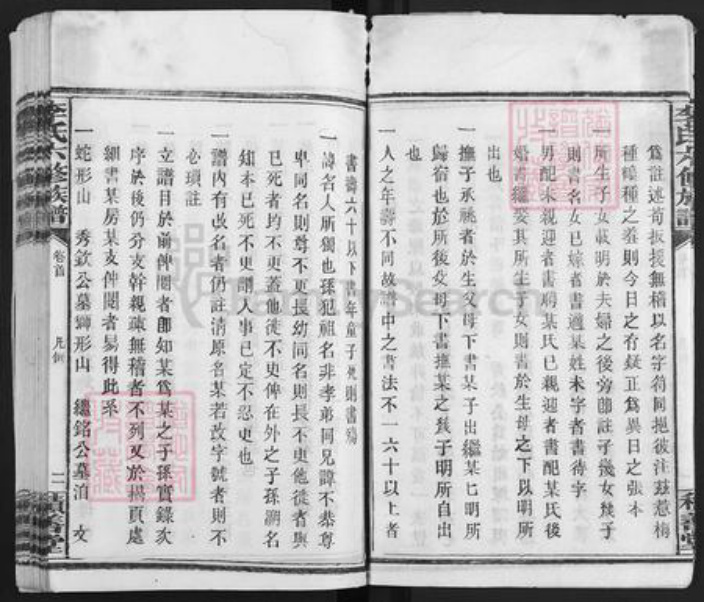 為註述苟扳援無稽以名字苟同挹彼注茲惹梅
種幪種之羞則今日之有疑正為異日之張本
一所生子女載明於夫婦之後旁節註子幾女幾子
則書名女已嫁者書適某姓未字者書待字
一男配未親迎者書聘某氏已親迎者書配某氏後
婚書繼妾其所生子女則書於生母之下以明所
出也
一撫子承祧者於生父母下書某子出繼某匕明所
歸宿也於所後父母下書撫某之幾子明所自出
也
一人之年壽不同故譜中之書法不一六十以上者
書壽六十以下書年童子死則書殤
一諱名人所獨也孫犯祖名非孝弟同兄諱不恭尊
卑同名則尊不更長幼同名則長不更他徙者與
已死者均不更蓋他徙不更俾在外之子孫溯名
知本已死不更謂人事已定不忍更也
一譜內有改名者仍註清原名某若改字號者則不
必瑣註
一立譜目於前俾閱者即知某為某之子孫實錄次
序於後仍分支幹親疎無稽者不列又於摺頁處
細書某房某支俾閱者易得此系
一蛇形山 秀欽公墓獅形山 繼銘公墓洎 女
李氏六修族譜
卷首
凡例
二